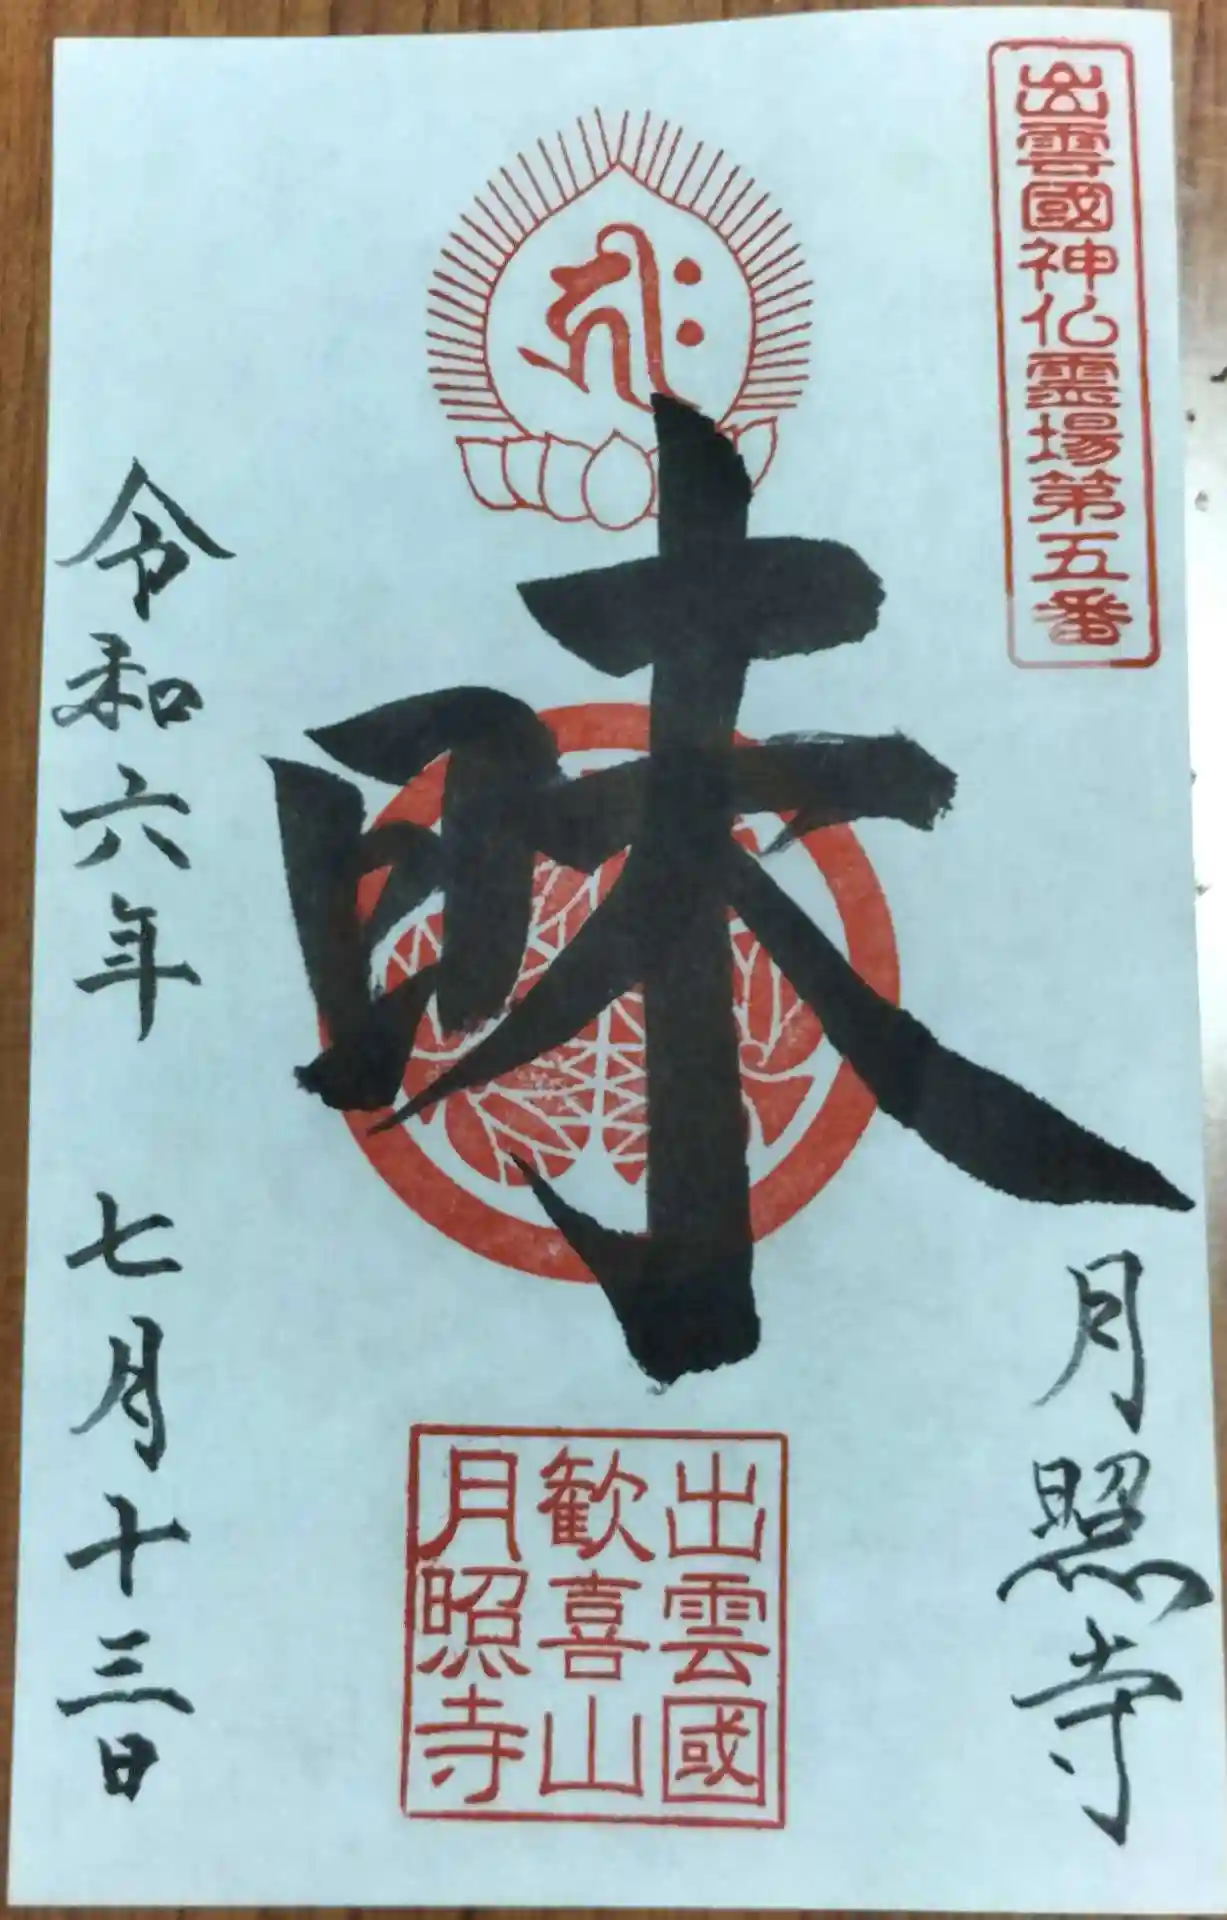 出雲國神仏霊場第五番
月照寺
𑖮𑖿𑖨𑖱𑖾
昧
出雲國
歓喜山
月照寺
令和六年 七月十三日